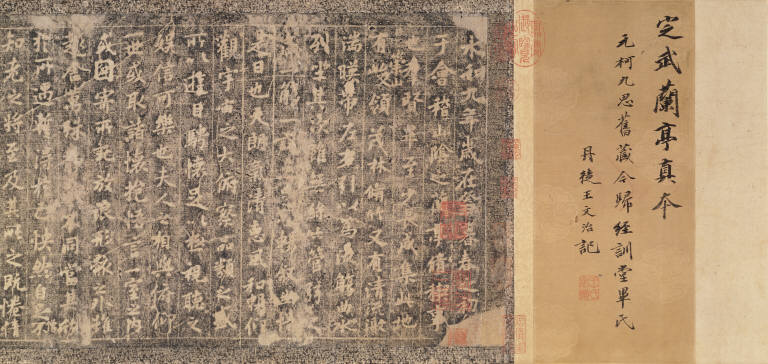 定武蘭亭真本
元柯九思舊藏今歸經訓堂畢氏
丹徒王文治記
永和九年歲在癸丑暮春之初
于會稽山陰之蘭亭脩稧事
也羣賢畢至少長咸集此地
有峻領茂林脩竹又有清流激
湍暎帶左右引以為流觴曲水
列坐其次雖無絲竹管弦之
一觴一詠暢敘幽情
是日也天朗氣清惠風和暢仰
觀宇宙之大俯察品類之盛
所以遊目騁懷足以極視聽之
娛信可樂也夫人之相與俯仰
一世或取諸懷抱悟言一室之內
或因寄所託放浪形骸之外雖
趣舍萬殊靜躁不同當其欣
於所遇蹔得於己快然自足不
知老之將至及其所之既惓情